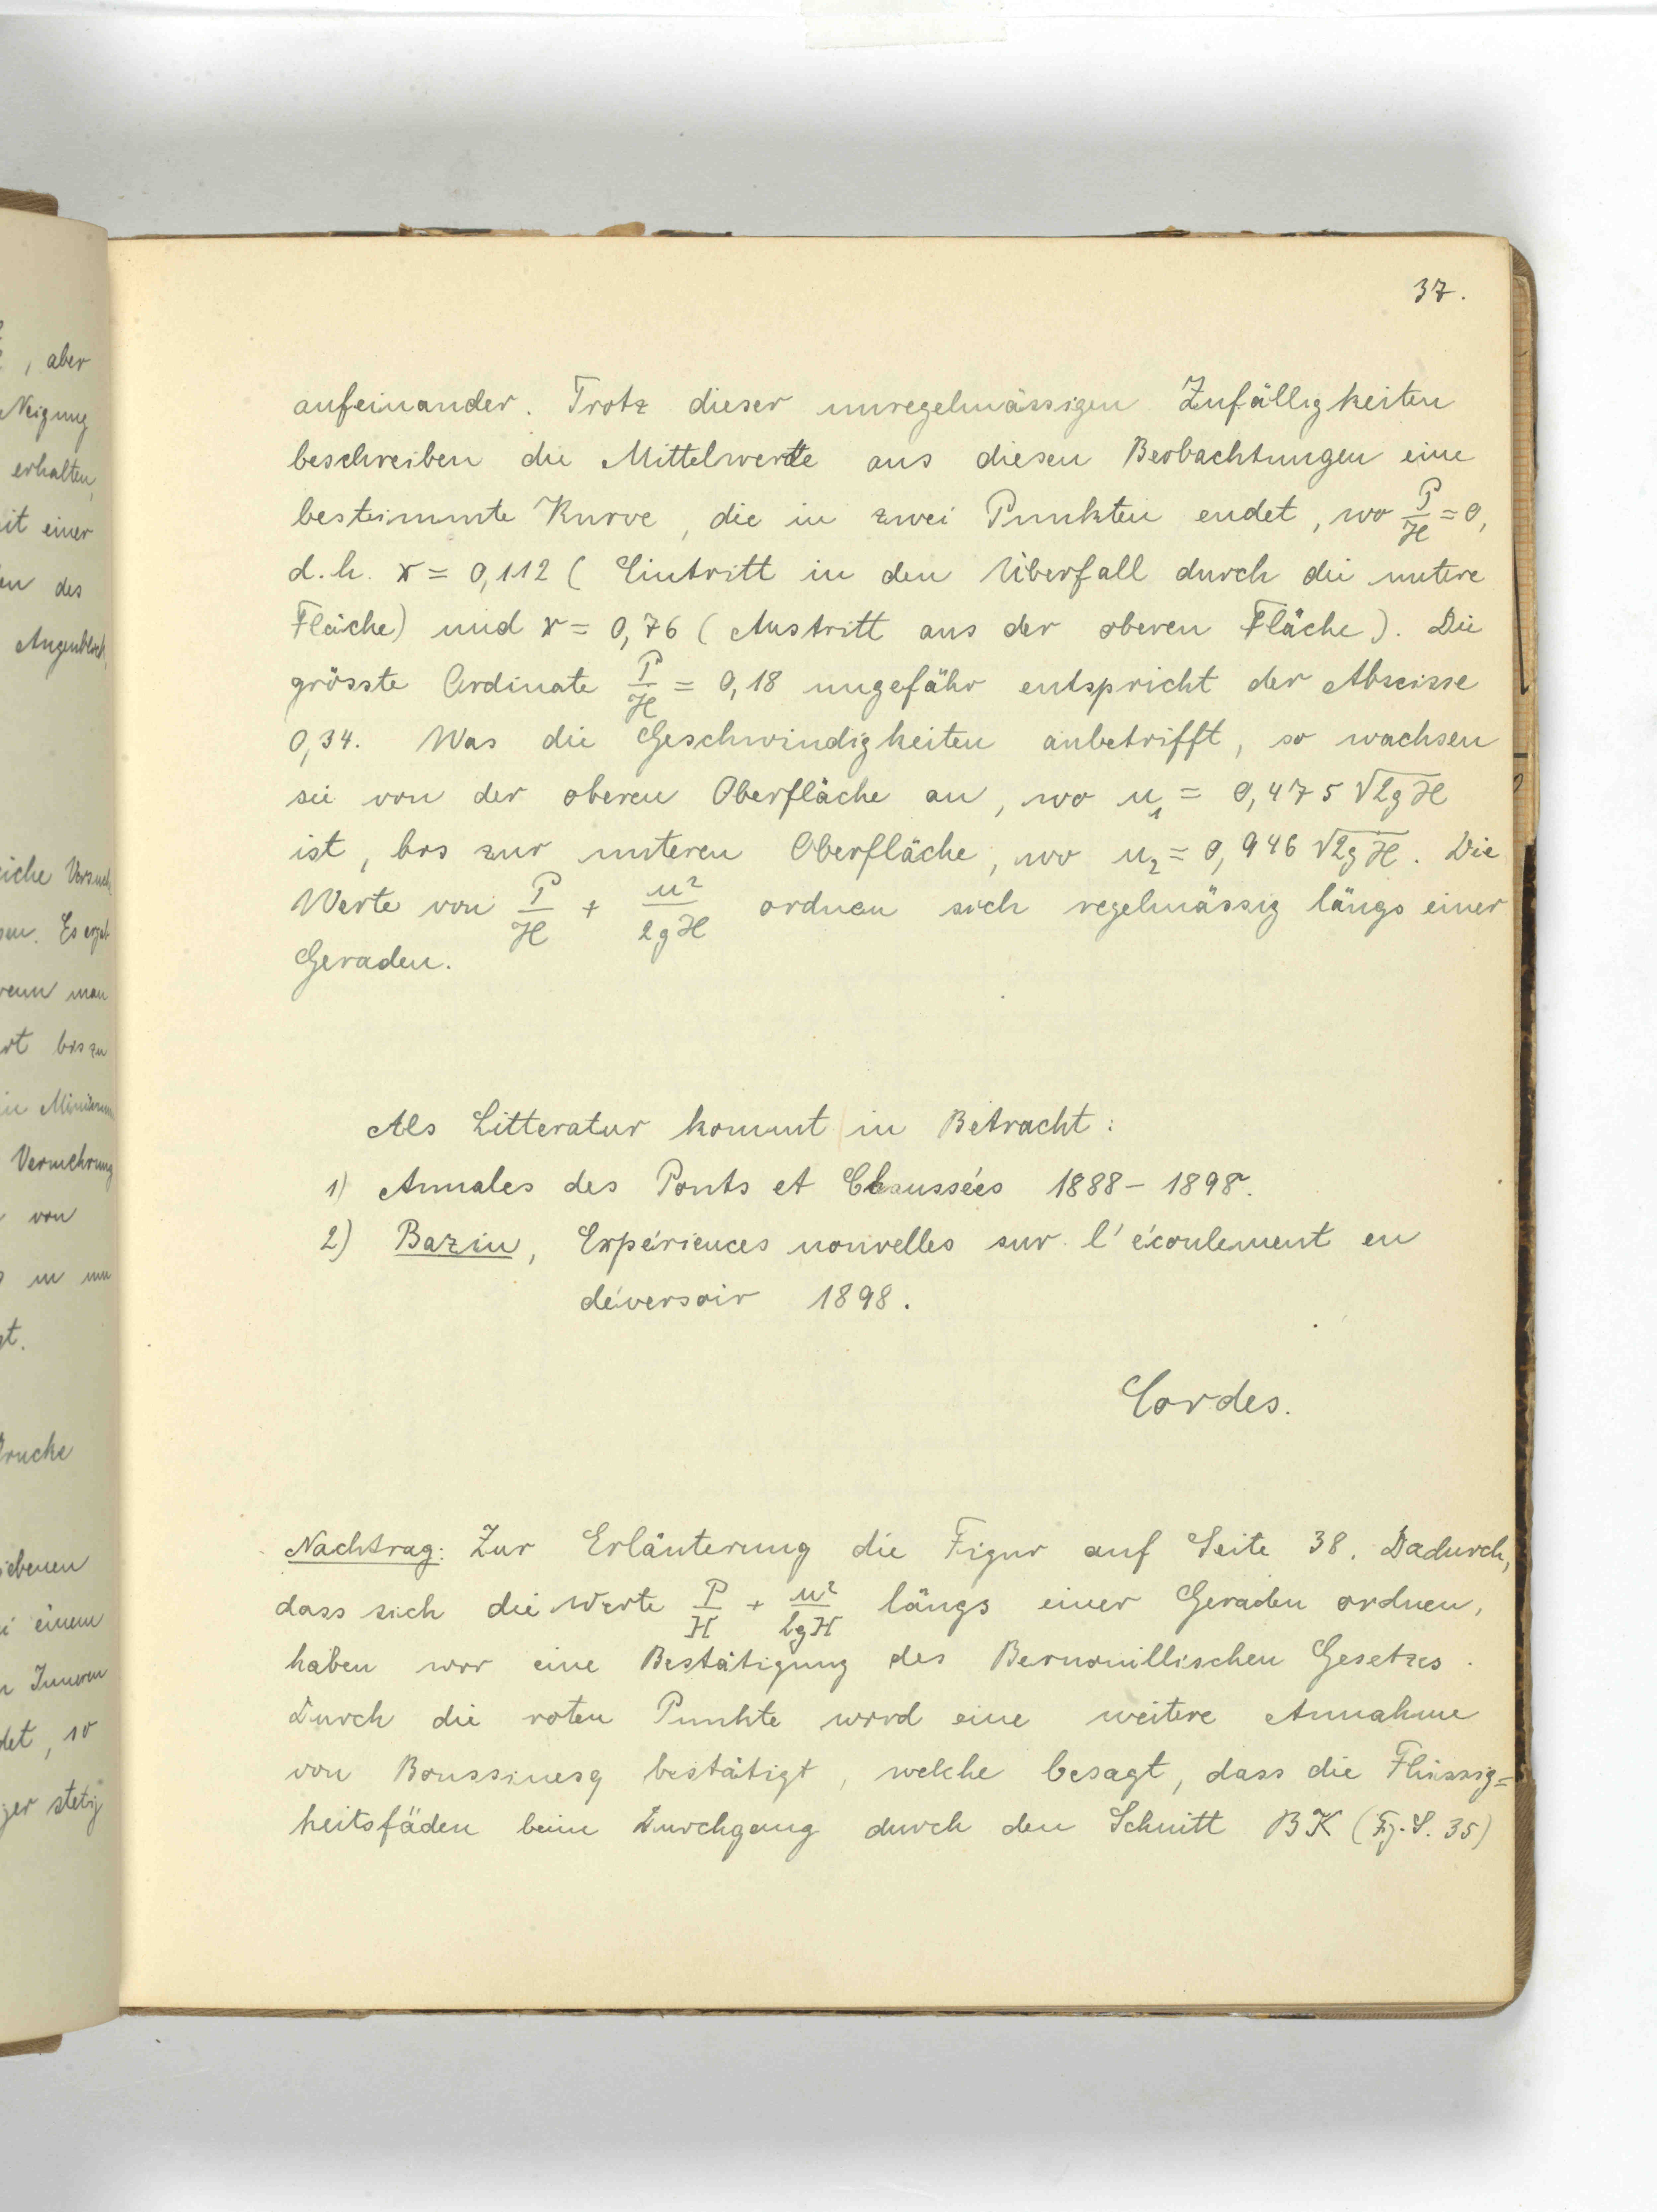 , aber
Neigung
erhalten,
it einer
en des
Augenblick
iche Versuch
sen. Es ergab
wenn man
rt bis zu
in Minimum
Vermehrung
von
gt.
rucke
iebenen
i einem
n Innern
det, so
ger stetig
37.
aufeinander. Trotz dieser unregelmässigen Zufälligkeiten
beschreiben die Mittelwerte aus diesen Beobachtungen eine
bestimmte Kurve, die in zwei Punkten endet, wo P/H = 0,
d.h. x = 0,112 (Eintritt in den Überfall durch die untere
Fläche) und x = 0,76 (Austritt aus der oberen Fläche). Die
grösste Ordinate P/H = 0,18 ungefähr entspricht der Abscisse
0,34. Was die Geschwindigkeiten anbetrifft, so wachsen
sie von der oberen Oberfläche an, wo u₁ = 0,475 √2gH
ist, bis zur unteren Oberfläche, wo u₂ = 0,946 √2gH. Die
Werte von P/H + u²/2gH ordnen sich regelmässig längs einer
Geraden.
Als Litteratur kommt in Betracht:
1) Annales des Ponts et Chaussées 1888 – 1898.
2) Bazin, Expériences nouvelles sur l'écoulement en
déversoir 1898.
Cordes.
Nachtrag: Zur Erläuterung die Figur auf Seite 38. Dadurch,
dass sich die Werte P/H + u²/2gH längs einer Geraden ordnen,
haben wir eine Bestätigung des Bernouillischen Gesetzes.
Durch die roten Punkte wird eine weitere Annahme
von Boussinesq bestätigt, welche besagt, dass die Flüssig=
keitsfäden beim Durchgang durch den Schnitt BK (Fg. S. 35)